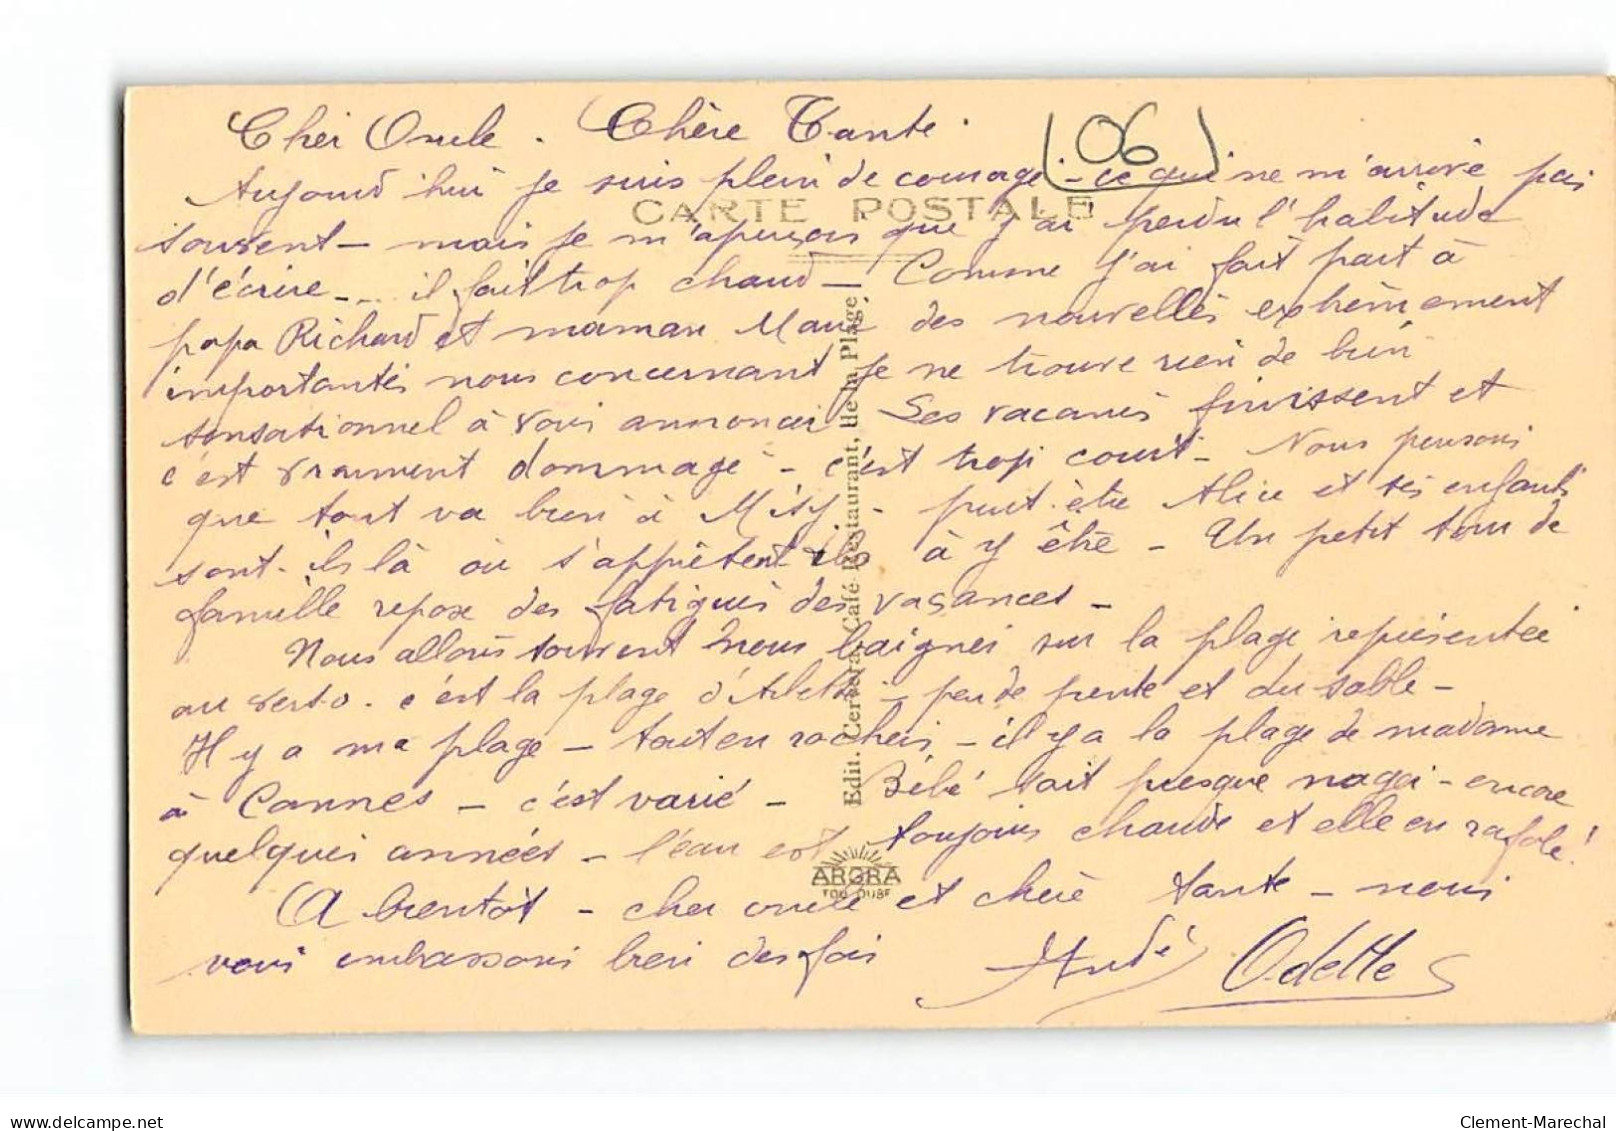 Cher Oncle. Chère Tante.
(06)
Aujourd'hui je suis plein de courage - ce qui ne m'arrive pas
CARTE POSTALE
souvent - mais je m'aperçois que j'ai perdu l'habitude
d'écrire - .. il fait trop chaud - Comme j'ai fait part à
papa Richard et maman des nouvelles extrêmement
importantes nous concernant je ne trouve rien de bien
sensationnel à vous annoncer. Les vacances finissent et
c'est vraiment dommage - c'est trop court - Nous pensons
que tout va bien à Misy - peut-être Alice et ses enfants
sont-ils là ou s'apprêtent-ils à y être - Un petit tour de
famille repose des fatigues des vacances -
Nous allons souvent nous baigner sur la plage représentée
au verso. c'est la plage d' - peu de pente et du sable -
Il y a ma plage - tout en rochers - il y a la plage de madame
à Cannes - c'est varié - Bébé sait presque nager - encore
quelques années - l'eau est toujours chaude et elle en rafole!
A bientôt - cher oncle et chère tante - nous
vous embrassons bien des fois
André Odette
Edit. Café Restaurant, de la Plage,
ARGRA
Clement-Marechal
https://www.delcampe.net